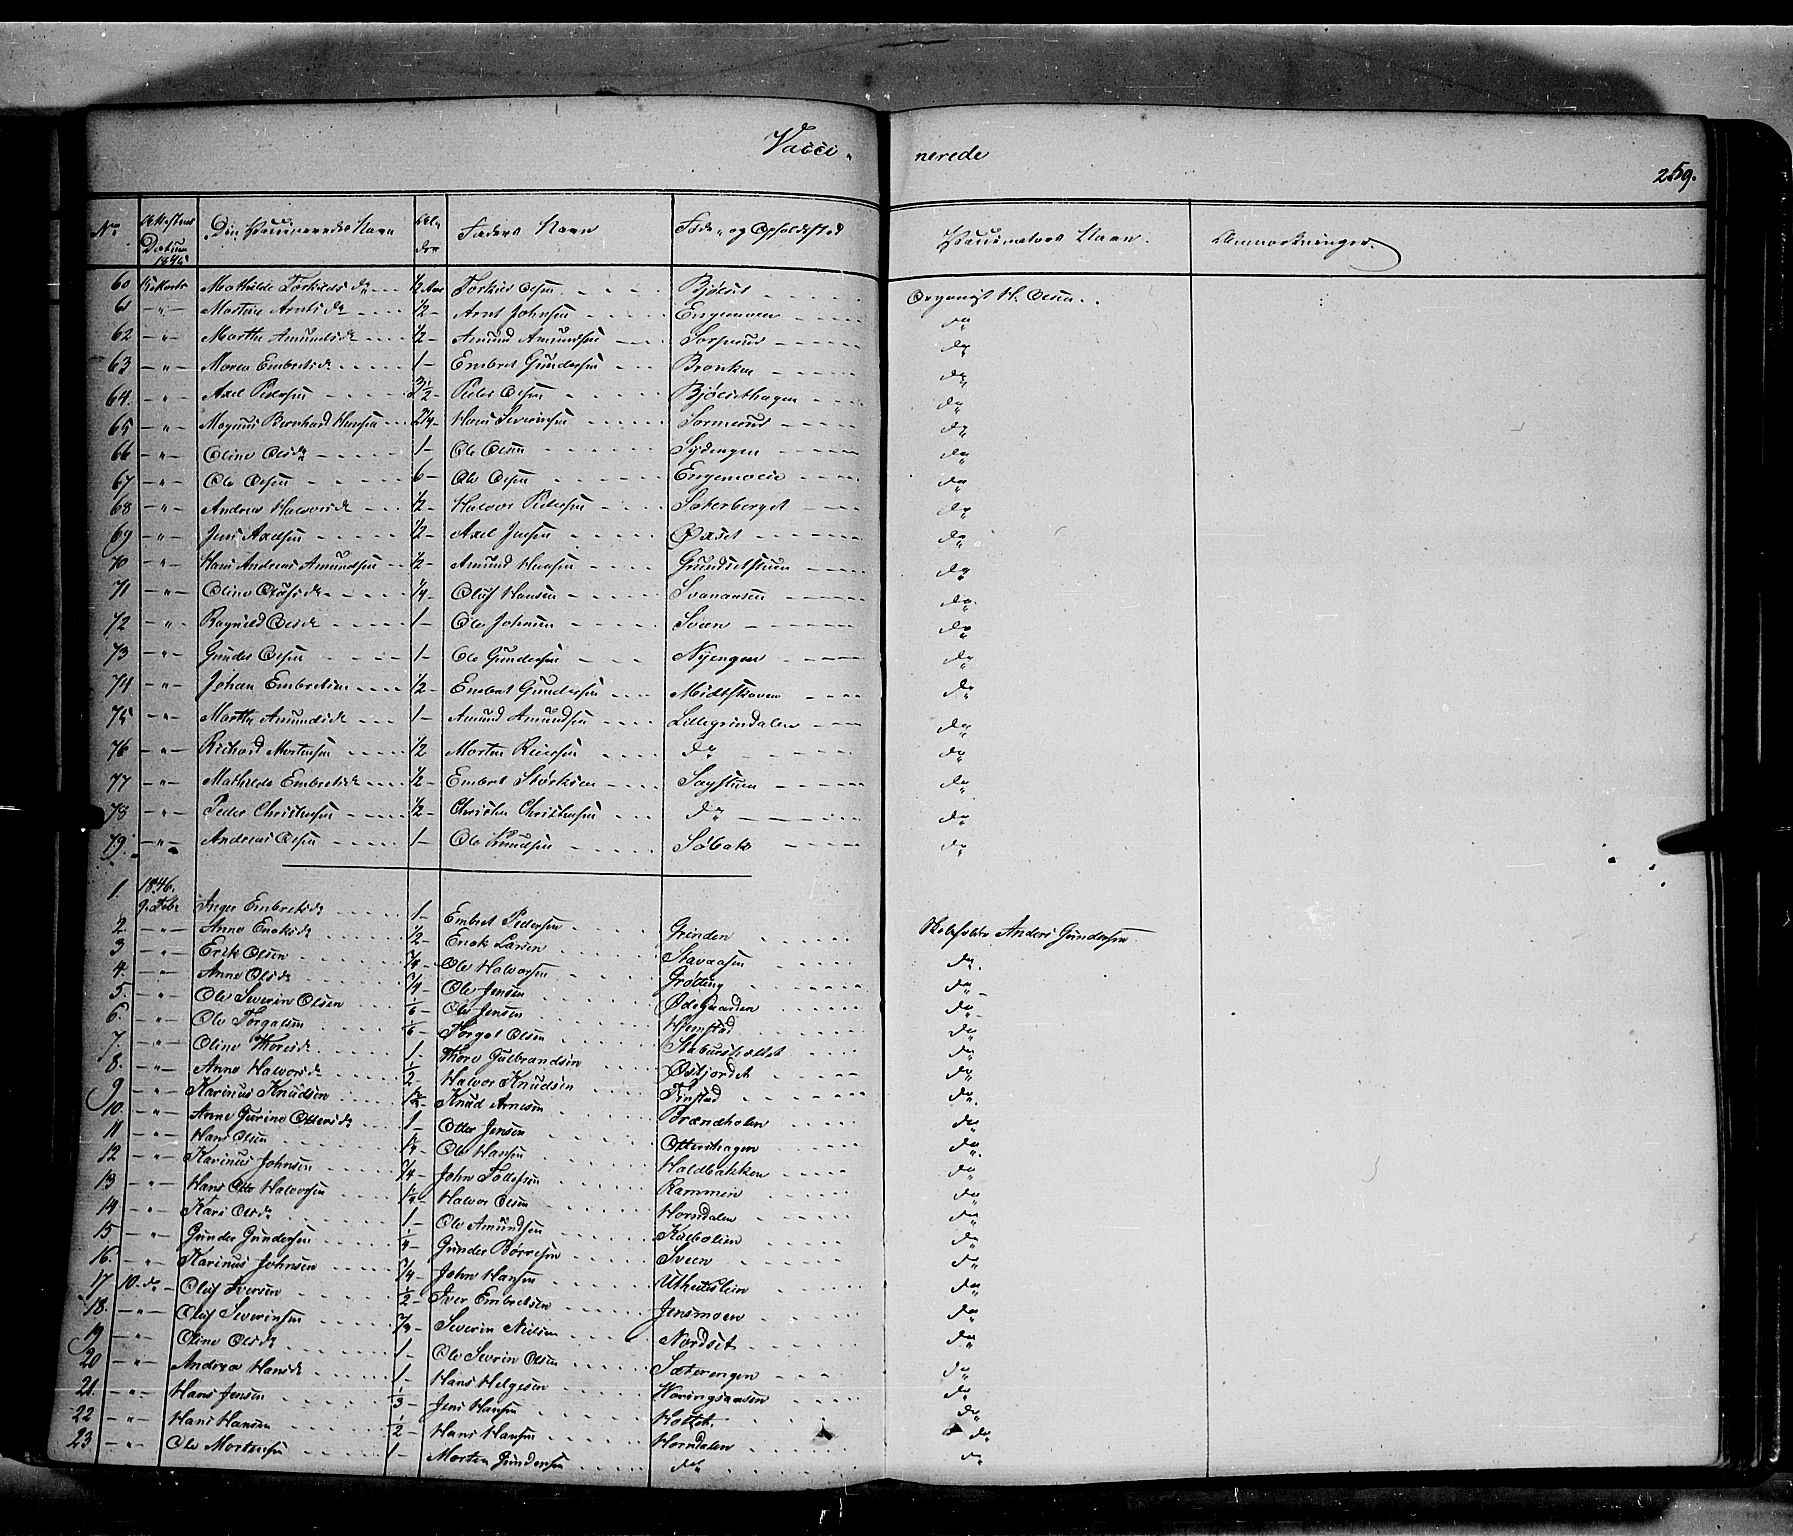 Vacci- nerede
259.
No. Attestens Datum 1845 Den Vaccineredes Navn Alder Faders Navn Føde- og Opholdssted Vaccinateurs Navn. Anmærkninger.
60 Mathilde Torkilds d. ½ Aar Torkild Olsen Bjølset Organist H. Olsen
61 -"- Martin Arntsd. ½- Arnt Johnsen Engemoen do
62 -"- Marthe Amundsd. ½- Amund Amundsen do
63 -"- Maren Embretsd. 1- Embret Gundersen Bronken do
64. -"- Axel Pedersen Peder Olsen Bjølsethagen do
65 -"- Magnus Bernhard Hansen Hans Severinsen do
66 -"- Oline Olsd. 1- Ole Olsen do
67 -"- Ole Olsen 6- Ole Olsen do
68 -"- Andrea Halvorsd. ½- Halvor Pedersen Sæterberget do
69 -"- Jens Axelsen ½- Axel Jensen Øxset do
70 -"- Hans Andreas Amundsen ½- Amund Hansen Grundsetstuen do
71 -"- Oline Olufsd. ¼- Oluf Hansen Svenaasen do
72 -"- Ragnild Olsd. 1- Ole Johnsen Sveen do
73 -"- Gunder Olsen 1- Ole Gundersen Nyengen do
74 -"- Johan Embretsen ½- Embret Gundersen Midtskoven do
75 -"- Marthe Amundsd. 1- Amund Amundsen Lillegrindalen do
76 -"- Richard Mortensen ½ Morten do do
77 -"- Mathilde Embretsd. ½ Embret Størksen Sagstuen do
78 -"- Peder Christensen ½- Christen Christensen do do
79. -"- Andreas Olsen 1- Ole Knudsen Søbak do
1. 1846. 9. Febr Inger Embretsd. 1- Embret Pedersen Grinden Skoleholder Anders Gundersen
2. -"- Anne Eriksd. ½- Erik Larsen Stavaasen do.
3 -"- Erik Olsen ¾- Ole Halvorsen Grøtting do
4. -"- Anne Olsd. ¾- Ole Jensen Ødegaarden do
5. -"- Ole Severin Olsen 1/6- Ole Jensen Hjemstad do
6. -"- Ole Torgalsen 1/6- Torgal Olsen do
7. -"- Oline Thoresd. 1- Thore Gulbrandsen Østjordet do
8. -"- Anne Halvorsd. ½- Halvor Knudsen Finstad do.
9 -"- Karinus Knudsen Knud Arnesen Brændholen do
10. -"- Anne Gurine Ottersd. 1- Otter Jensen Ottershagen do
11 -"- Hans Olsen Ole Hansen Haldbakken do
12 -"- Karinus Johnsen ¾- John Tollefsen Rammen do
13 -"- Hans Otto Halvorsen Halvor Olsen Horndalen do
14 -"- Kari Olsd. 1- Ole Amundsen do
15 -"- Gunder Gundersen ¼- Gunder Børresen Sveen do
16. -"- Karinus Johnsen ¾- John Hansen do
17 10. do Oluf Iversen ½- Iver Embretsen Jensmoen do
18. -"- Oluf Severinsen Severin Nielsen Nordset do
19 -"- Oline Olsd. 1- Ole Severin Olsen Sæterengen do
20 -"- Andrea Hansd. 1- Hans Helgesen do
21. -"- Hans Jensen ⅓- Jens Hansen do
22 -"- Hans Hansen ½- Hans Hansen Horndalen do
23 -"- Ole Mortensen 1- Morten Gundersen do do